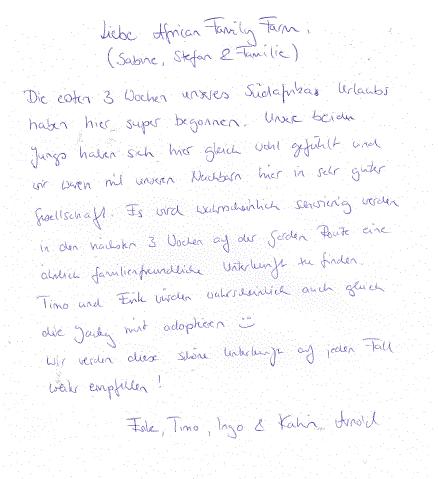 Liebe African Family Farm,
(Sabine, Stefan & Familie)
Die ersten 3 Wochen unseres Südafrikas Urlaubs
haben hier super begonnen. Unsere beiden
Jungs haben sich hier gleich wohl gefühlt und
wir waren mit unseren Nachbarn hier in sehr guter
Gesellschaft. Es wird wahrscheinlich schwierig werden
in den nächsten 3 Wochen auf der Garden Route eine
ähnlich familienfreundliche Unterkunft zu finden.
Timo und Erik würden wahrscheinlich auch gleich
die mit adoptieren
Wir werden diese schöne Unterkunft auf jeden Fall
weiter empfehlen!
Timo, Ingo & Katrin Arnold